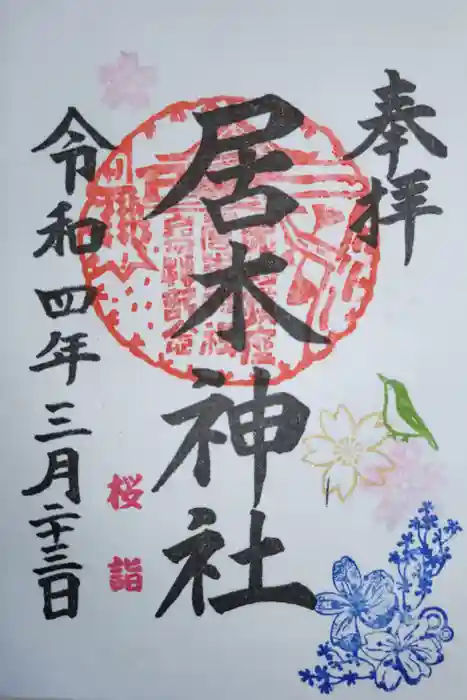 奉拝
居木神社
桜詣
令和四年三月二十三日